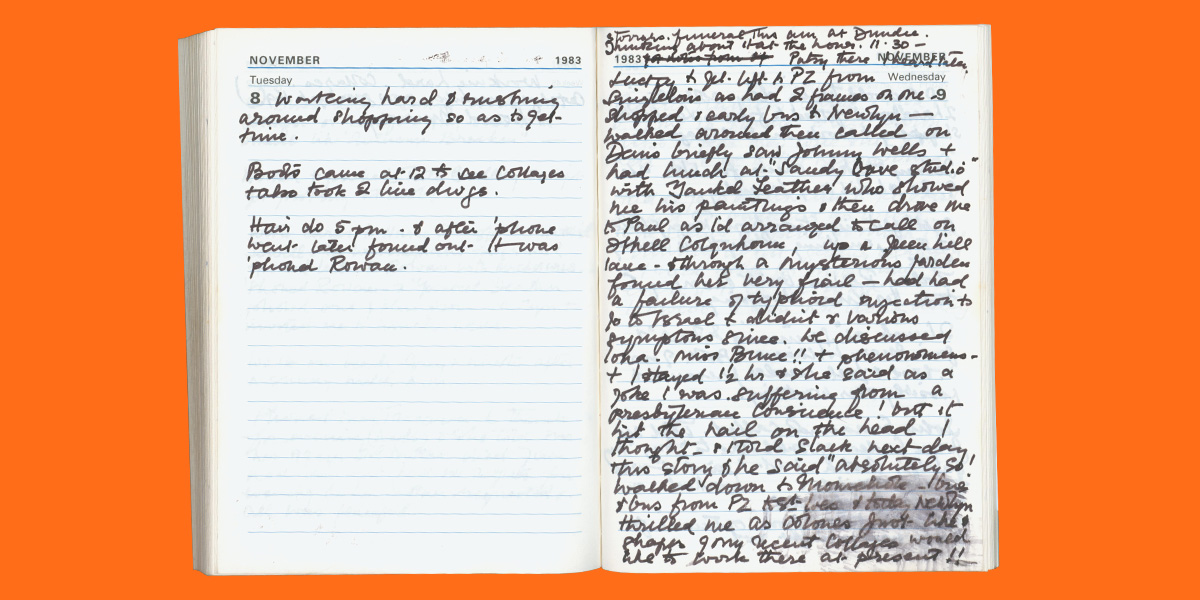 NOVEMBER 1983
Tuesday
8 Working hard & rushing
around shopping so as to get
time.
Boots came at 12 to see Collages
+ also took 2 line drwgs.
Hair do 5 pm. & after 'phone
went later found out it was
'phond Rowan.
funeral this am at Dundee.
Thinking about it at the hour. 11.30 –
1983 NOVEMBER
Patsy there
Wednesday
& get lift to PZ from
as had 2 frames on me. 9
shopped & early bus to Newlyn —
walked around then called on
briefly saw Johnny Wells +
had lunch at "Sandy Cove studio"
with Yankel Feather who showed
me his paintings & then drove me
to Paul as I'd arranged to call on
Ithell Colquhoun, up a green hill
lane - & through a mysterious garden
found her very frail — had had
a failure of typhoid injection to
go to Israel + didn't & various
symptons since. We discussed
Iona. Miss Bruce!! + phenomenons -
+ I stayed 1/2 hr & she said as a
joke I was suffering from a
presbyterian Conscience! but it
hit the nail on the head I
thought - & I told Slack next day
this story & he said "absolutely so!
walked down to Mousehole
& bus from PZ to St Ives & Newlyn
thrilled me as colours just like
shapes of my recent Collages would
like to work there at present!!